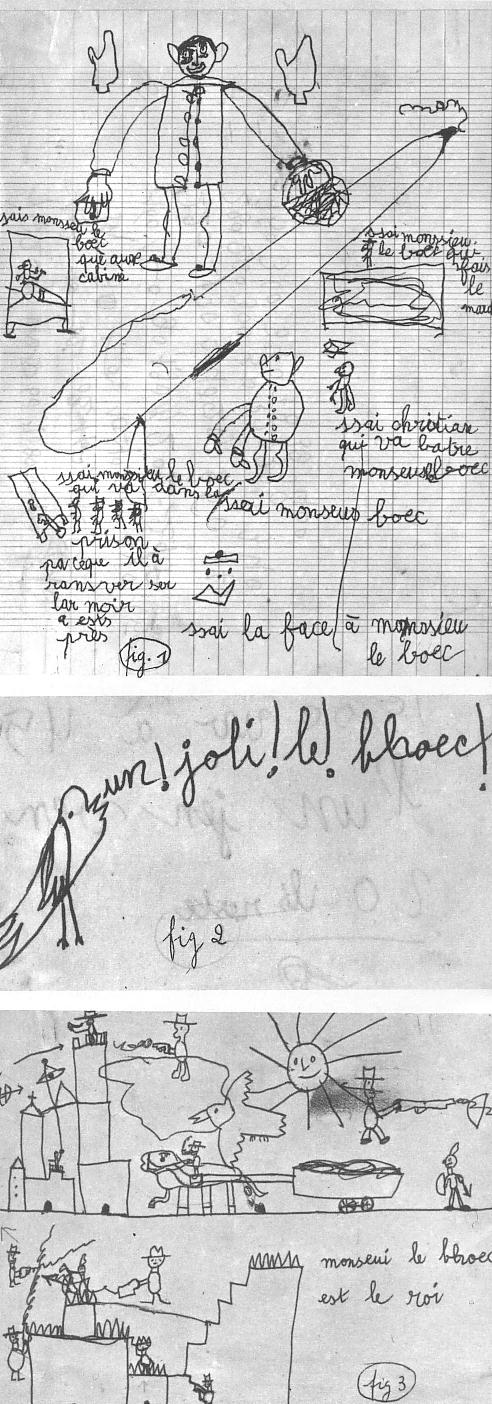 sais monsieu le
boec
que aux
cabine
ssai monssieu
le boec qui
fais
le
ssai christian
qui va batre
monseur boec
ssai monssieu le boec
qui va dans la
prison
paceque il à
rans ver ser
lar moir
a ests
près
ssai monseur boec
ssai la face à monssieu
le boec
fig. 1
un! joli! le! bboec!
fig 2
monseui le bboec
est le roi
fig 3